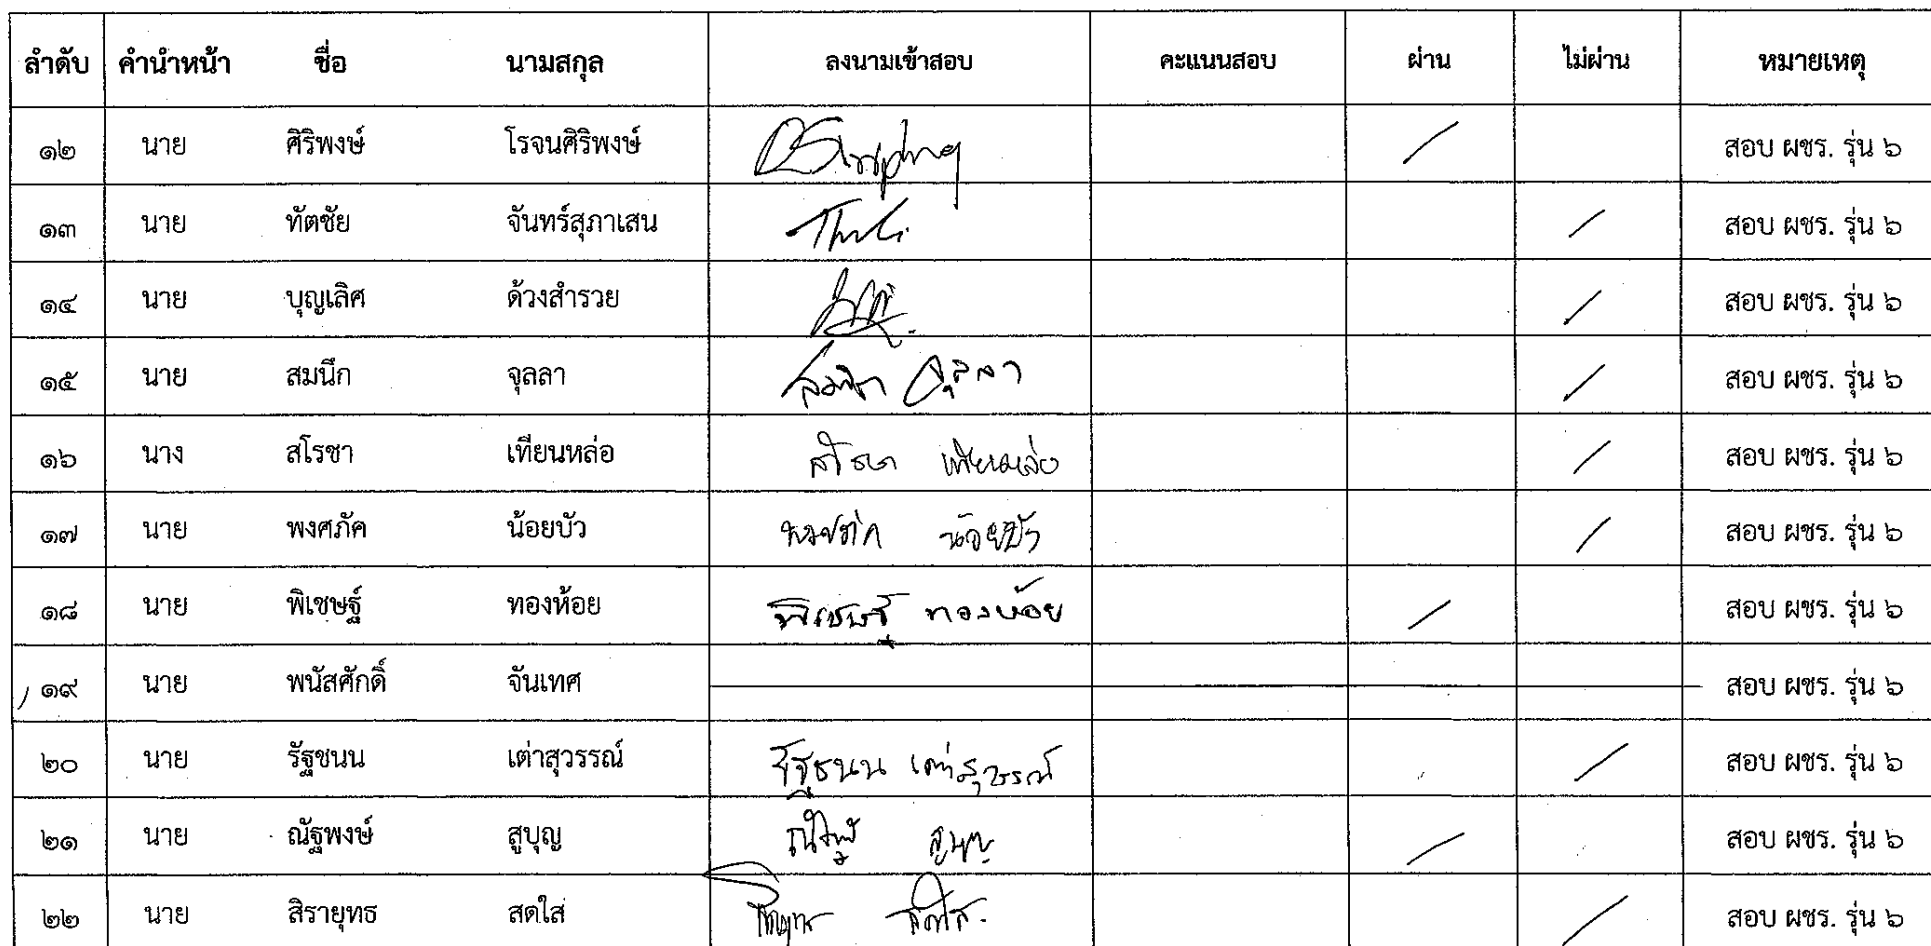 ลำดับ คำนำหน้า ชื่อ นามสกุล ลงนามเข้าสอบ คะแนนสอบ ผ่าน ไม่ผ่าน หมายเหตุ
๑๒ นาย ศิริพงษ์ โรจนศิริพงษ์ / สอบ ผชร. รุ่น ๖
๑๓ นาย ทัตชัย จันทร์สุภาเสน / สอบ ผชร. รุ่น ๖
๑๔ นาย บุญเลิศ ด้วงสำรวย / สอบ ผชร. รุ่น ๖
๑๕ นาย สมนึก จุลลา สมนึก จุลลา / สอบ ผชร. รุ่น ๖
๑๖ นาง สโรชา เทียนหล่อ สโรชา เทียนหล่อ / สอบ ผชร. รุ่น ๖
๑๗ นาย พงศภัค น้อยบัว พงศภัค น้อยบัว / สอบ ผชร. รุ่น ๖
๑๘ นาย พิเชษฐ์ ทองห้อย พิเชษฐ์ ทองห้อย / สอบ ผชร. รุ่น ๖
๑๙ นาย พนัสศักดิ์ จันเทศ สอบ ผชร. รุ่น ๖
๒๐ นาย รัฐชนน เต่าสุวรรณ์ รัฐชนน เต่าสุวรรณ์ / สอบ ผชร. รุ่น ๖
๒๑ นาย ณัฐพงษ์ สูบุญ / สอบ ผชร. รุ่น ๖
๒๒ นาย สิรายุทธ สดใส่ / สอบ ผชร. รุ่น ๖